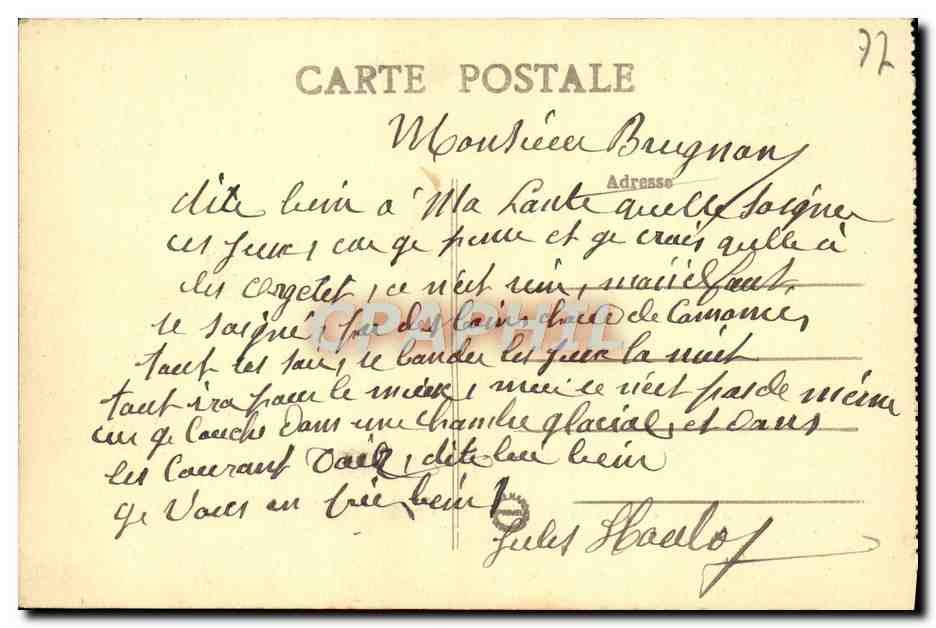 72
CARTE POSTALE
Monsieur Brugnon
Adresse
dite bein a Ma tante quelle soigne
ces yeux, car ge pense et ge crois quelle à
des orgelet, ce n'est rien, mais il faut
se soigné, par des bains chaud de Camomie,
tout les soir, se bander les yeux la nuit
tout ira pour le mieux, moi ce n'est pas de même
car ge couche dans une chambre glacial, et dans
les courant d'air, dite lui bein
ge vous en prie, bein
Jules
CPAPHIL